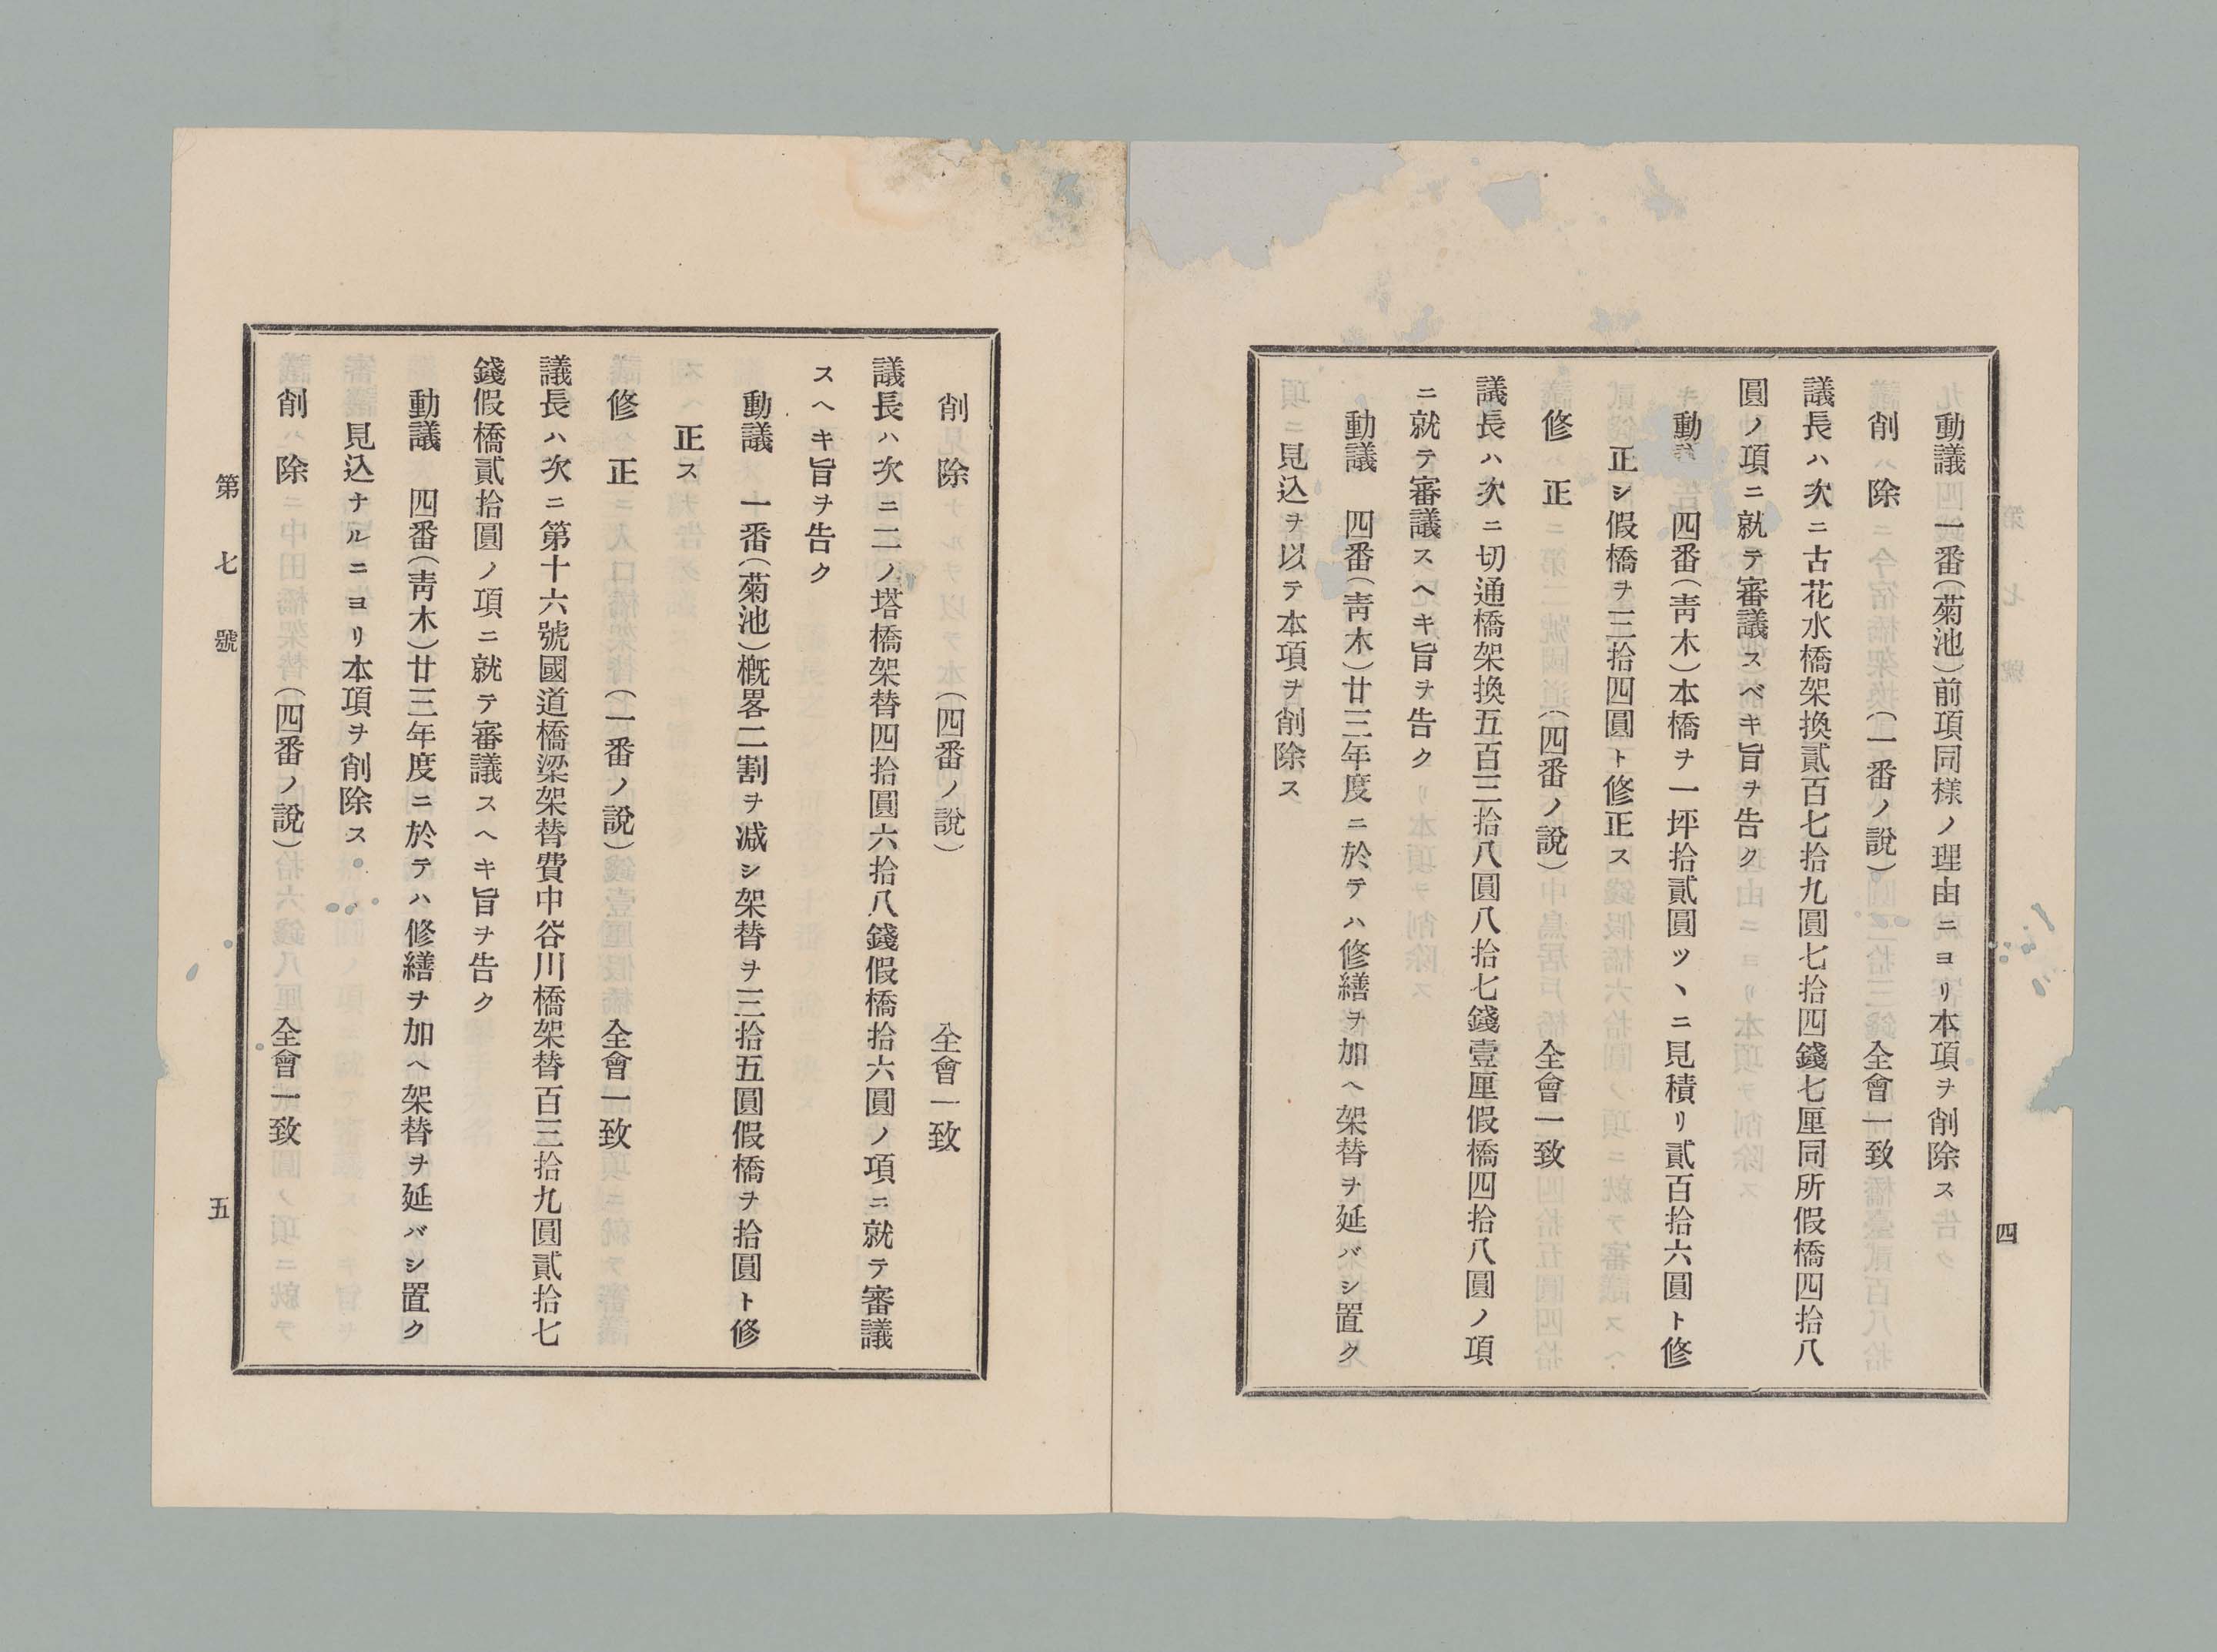 動議　一番（菊池）前項同樣ノ理由ニヨリ本項ヲ削除ス
削　除　（一番ノ說）　全會一致
議長ハ次ニ古花水橋架換貳百七拾九圓七拾四錢七厘同所假橋四拾八
圓ノ項ニ就テ審議スベキ旨ヲ告ク
動　四番（靑木）本橋ヲ一坪拾貳圓ツヽニ見積リ貳百拾六圓ト修
正シ假橋ヲ三拾四圓ト修正ス
修　正　（四番ノ說）　全會一致
議長ハ次ニ切通橋架換五百三拾八圓八拾七錢壹厘假橋四拾八圓ノ項
ニ就テ審議スヘキ旨ヲ告ク
動議　四番（靑木）廿三年度ニ於テハ修繕ヲ加ヘ架替ヲ延バシ置ク
見込ヲ以テ本項ヲ削除ス
四
削　除　（四番ノ說）　全會一致
議長ハ次ニ二ノ塔橋架替四拾圓六拾八錢假橋拾六圓ノ項ニ就テ審議
スヘキ旨ヲ告ク
動議　一番（菊池）槪畧二割ヲ減シ架替ヲ三拾五圓假橋ヲ拾圓ト修
正ス
修　正　（一番ノ說）　全會一致
議長ハ次ニ第十六號國道橋梁架替費中谷川橋架替百三拾九圓貳拾七
錢假橋貳拾圓ノ項ニ就テ審議スヘキ旨ヲ告ク
動議　四番（靑木）廿三年度ニ於テハ修繕ヲ加ヘ架替ヲ延バシ置ク
見込ナルニヨリ本項ヲ削除ス
削　除　（四番ノ說）　全會一致
第七號
五